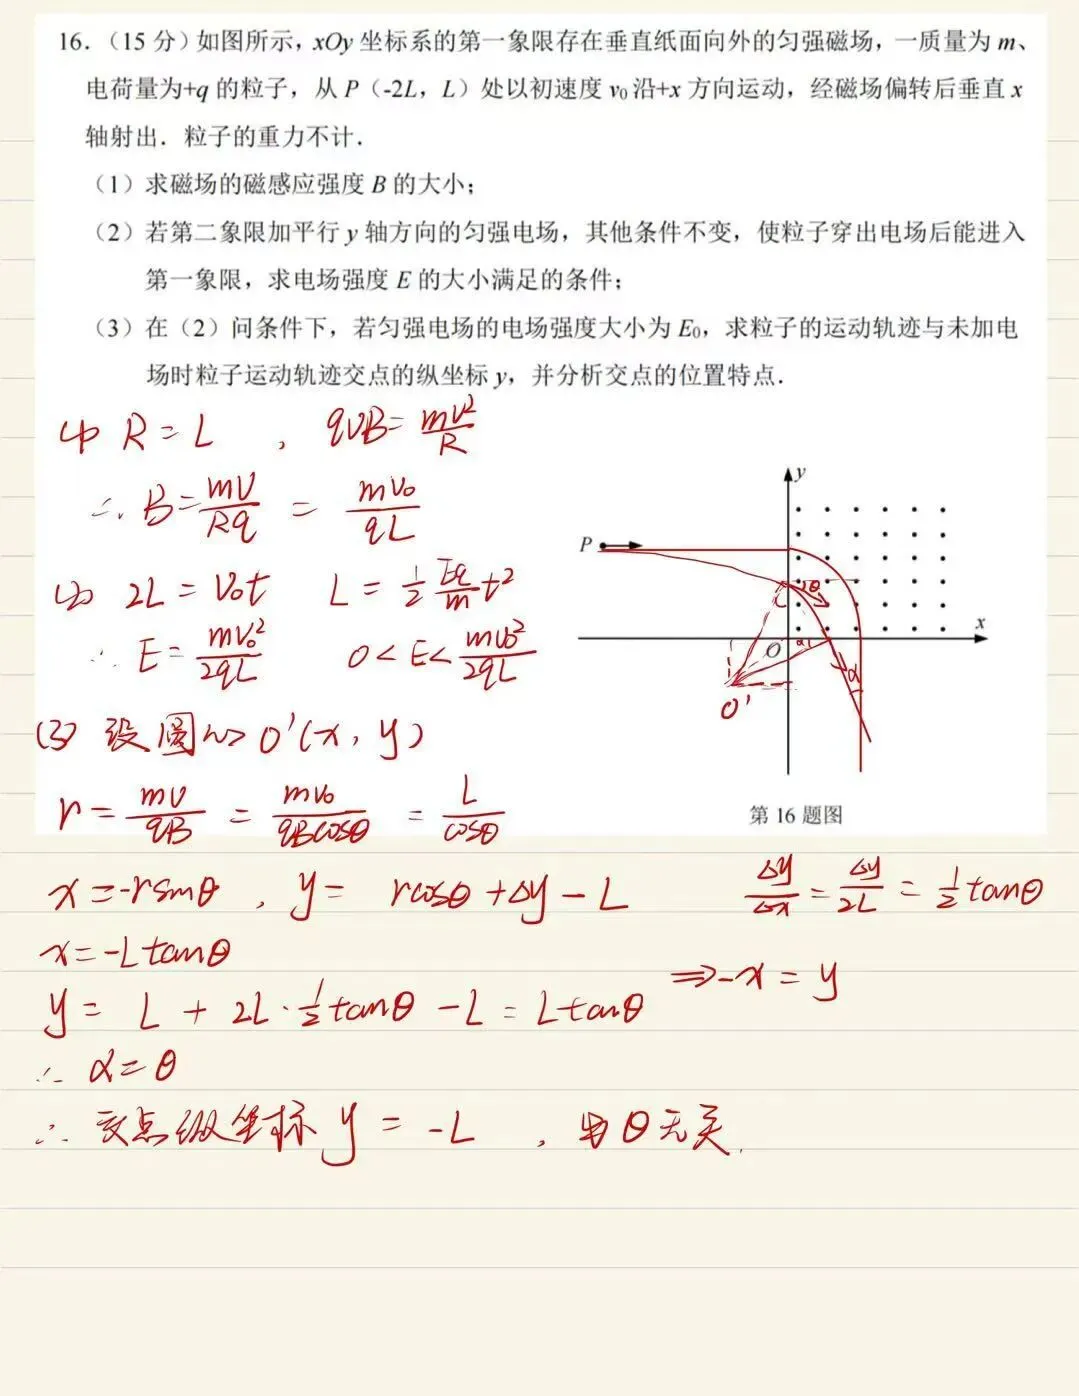 16.（15 分）如图所示，xOy 坐标系的第一象限存在垂直纸面向外的匀强磁场，一质量为 m、
电荷量为+q 的粒子，从 P（-2L，L）处以初速度 v₀ 沿+x 方向运动，经磁场偏转后垂直 x
轴射出．粒子的重力不计．
（1）求磁场的磁感应强度 B 的大小；
（2）若第二象限加平行 y 轴方向的匀强电场，其他条件不变，使粒子穿出电场后能进入
第一象限，求电场强度 E 的大小满足的条件；
（3）在（2）问条件下，若匀强电场的电场强度大小为 E₀，求粒子的运动轨迹与未加电
场时粒子运动轨迹交点的纵坐标 y，并分析交点的位置特点．
(1) R = L , qvB = mv²/R
∴ B = mv/Rq = mv₀/qL
(2) 2L = v₀t L = 1/2 Eq/m t²
∴ E = mv₀²/2qL 0 < E < mv₀²/2qL
(3) 设圆心 O'(x, y)
r = mv/qB = mv₀/qBcosθ = L/cosθ
x = -rsinθ , y = rcosθ + Δy - L Δy/Δx = Δy/2L = 1/2 tanθ
x = -Ltanθ
y = L + 2L · 1/2 tanθ - L = Ltanθ ⇒ -x = y
∴ α = θ
∴ 交点纵坐标 y = -L , 与 θ 无关.
y
P
θ
x
O
α
α
O'
第 16 题图